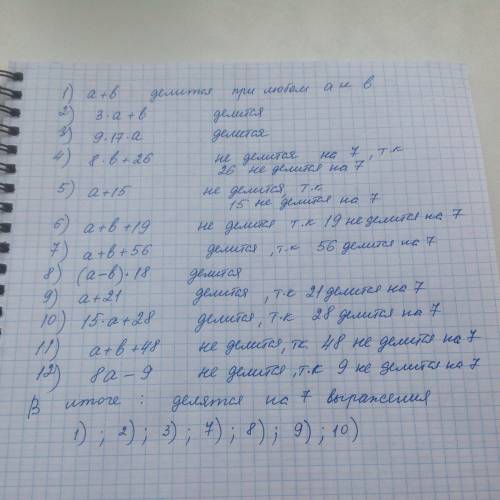 1) а+в делится при любом а и в
2) 3·а+в делится
3) 9·17·а делится
4) 8·в+26 не делится на 7, т.к
26 не делится на 7
5) а+15 не делится, т.к
15 не делится на 7
6) а+в+19 не делится т.к 19 не делится на 7
7) а+в+56 делится, т.к 56 делится на 7
8) (а-в)·18 делится
9) а+21 делится, т.к 21 делится на 7
10) 15·а+28 делится, т.к 28 делится на 7
11) а+в+48 не делится, тк 48 не делится на 7
12) 8а-9 не делится, т.к 9 не делится на 7
В итоге: делятся на 7 выражения
1); 2); 3); 7); 8); 9); 10)